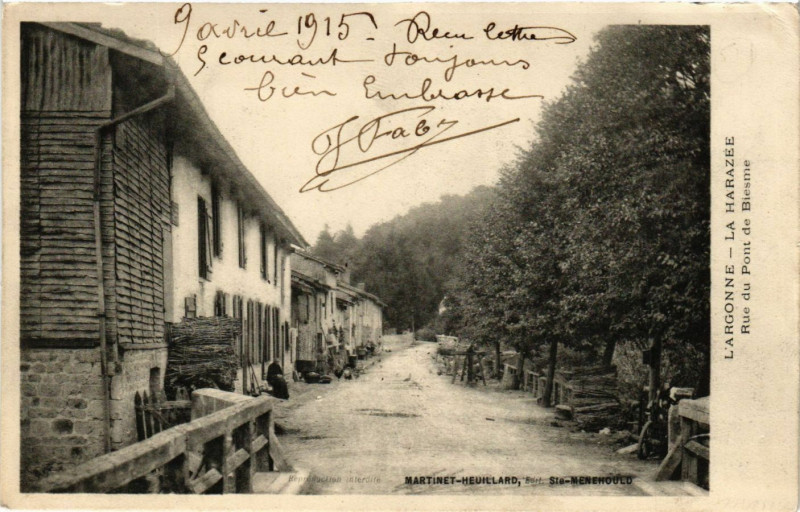 9 avril 1915. Recu lettre
5 courant toujours
bien Embrasse
Fab
L'ARGONNE - LA HARAZÉE
Rue du Pont de Biesme
Reproduction interdite
MARTINET-HEUILLARD, Edit. Ste-MENEHOULD